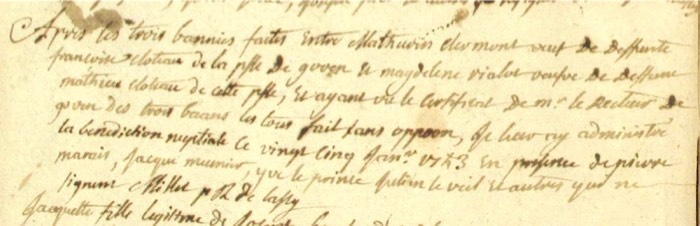 Apres les trois bannies faites entre Mathurin clermont veuf de deffunte
francoise cloteau de la psse de goven et magdelene vialet veufve de deffunt
mathieu cloteau de cette psse, et ayant vu le certificat de mr. le Recteur de
goven des trois banns les tous fait sans oppoon, Je leur ay administré
la benediction nuptiale ce vingt cinq Janr. 1743 en presence de pierre
marais, Jacque meunier, yve le prince Julien le veil et autres qui ne
signent Millet p R de lassy
Jacquette fille legitime de